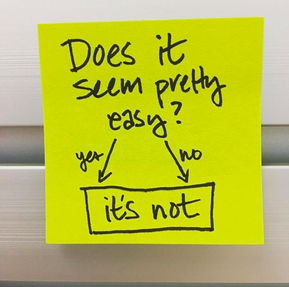 Does it
seem pretty
easy?
yes no
it's not